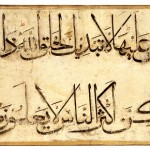 عليها لا تبديل لخلق الله
كن أكثر الناس لا يعلمون